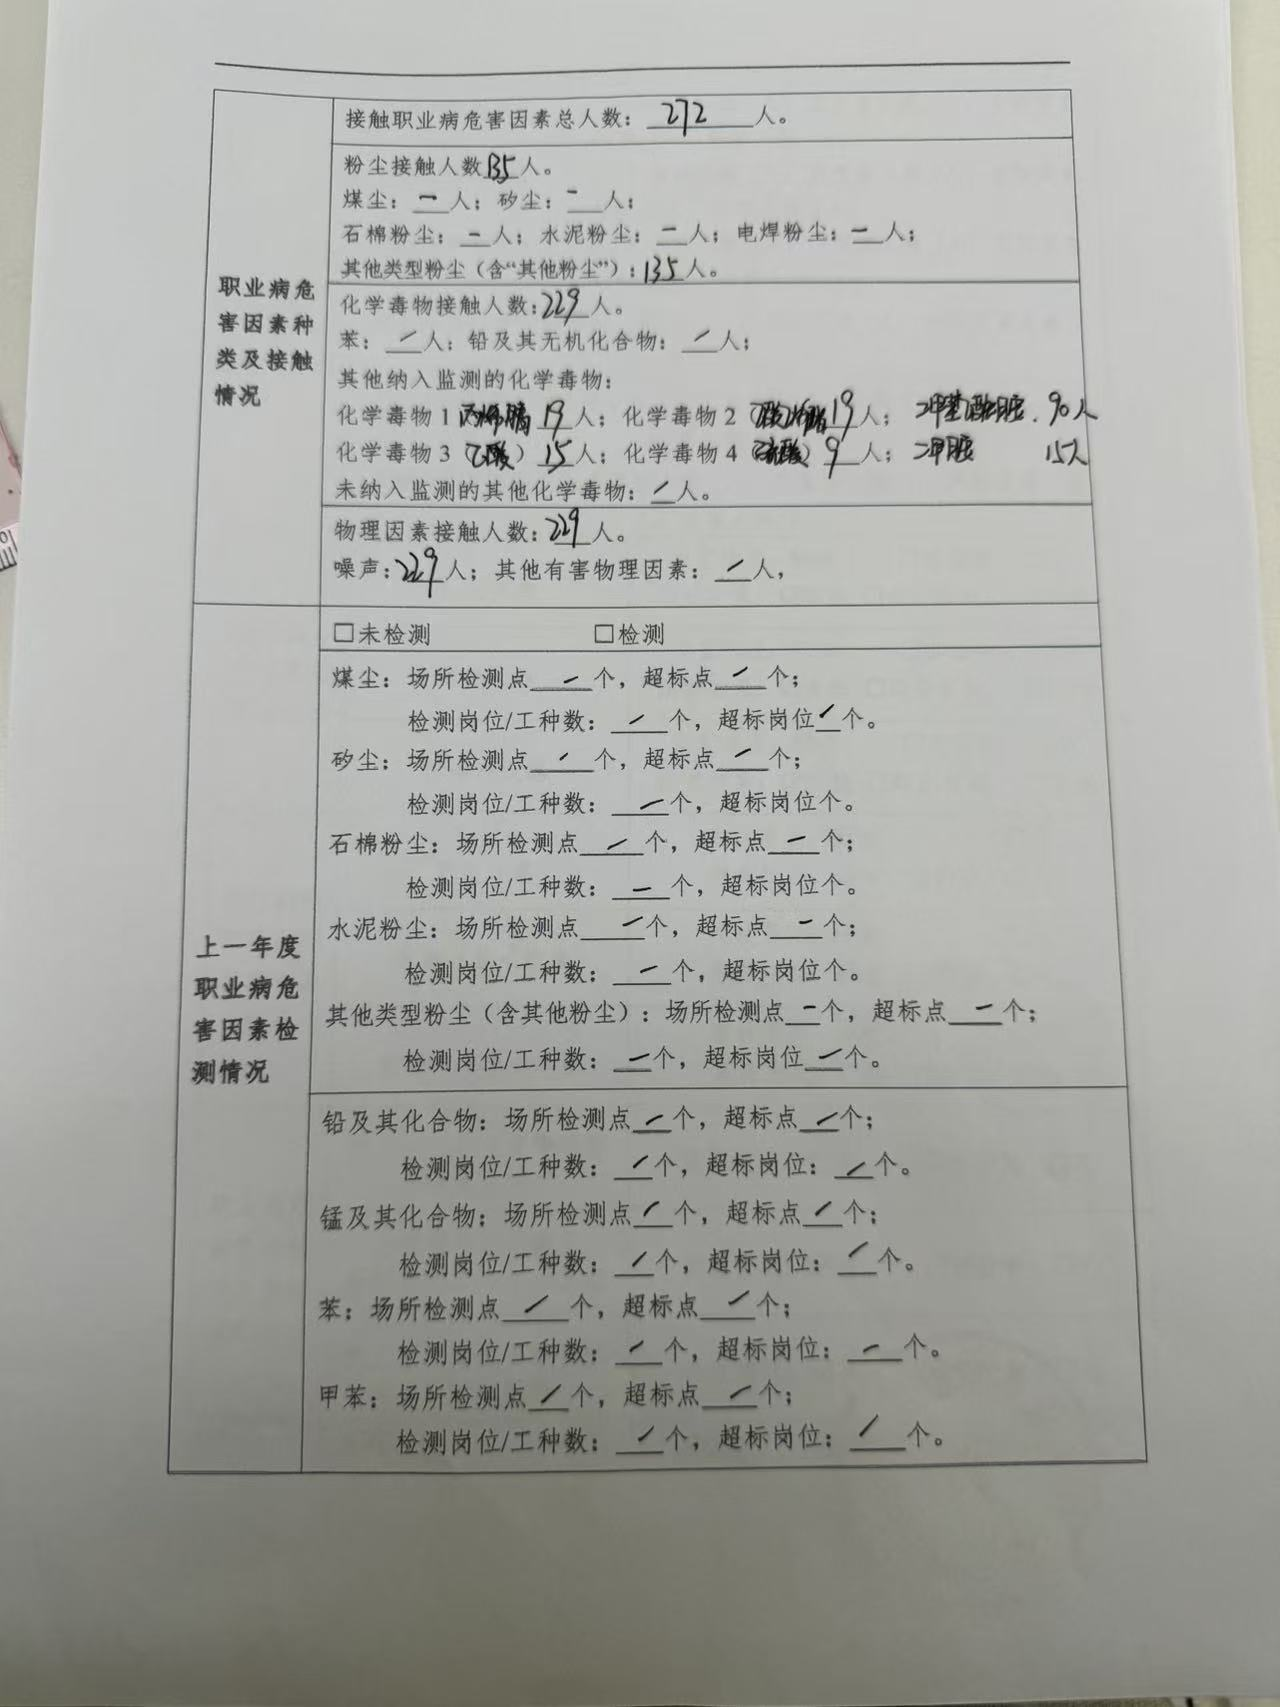 接触职业病危害因素总人数：272人。
粉尘接触人数135人。
煤尘：一人；矽尘：-人；
石棉粉尘：-人；水泥粉尘：-人；电焊粉尘：-人；
其他类型粉尘（含“其他粉尘”）：135人。
职业病危
害因素种
类及接触
情况
化学毒物接触人数：229人。
苯：/人；铅及其无机化合物：/人；
其他纳入监测的化学毒物：
化学毒物1 丙烯腈 19人；化学毒物2 19人；二甲基乙酰胺. 90人
化学毒物3（乙酸）15人；化学毒物4（硫酸）9人；二甲胺 15人
未纳入监测的其他化学毒物：/人。
物理因素接触人数：229人。
噪声：229人；其他有害物理因素：/人，
□未检测 □检测
煤尘：场所检测点/个，超标点/个；
检测岗位/工种数：/个，超标岗位/个。
矽尘：场所检测点/个，超标点/个；
检测岗位/工种数：/个，超标岗位个。
石棉粉尘：场所检测点/个，超标点-个；
检测岗位/工种数：-个，超标岗位个。
水泥粉尘：场所检测点/个，超标点-个；
检测岗位/工种数：/个，超标岗位个。
其他类型粉尘（含其他粉尘）：场所检测点-个，超标点-个；
检测岗位/工种数：-个，超标岗位/个。
上一年度
职业病危
害因素检
测情况
铅及其化合物：场所检测点/个，超标点/个；
检测岗位/工种数：/个，超标岗位：/个。
锰及其化合物：场所检测点/个，超标点/个；
检测岗位/工种数：/个，超标岗位：/个。
苯：场所检测点/个，超标点/个；
检测岗位/工种数：/个，超标岗位：-个。
甲苯：场所检测点/个，超标点/个；
检测岗位/工种数：/个，超标岗位：/个。